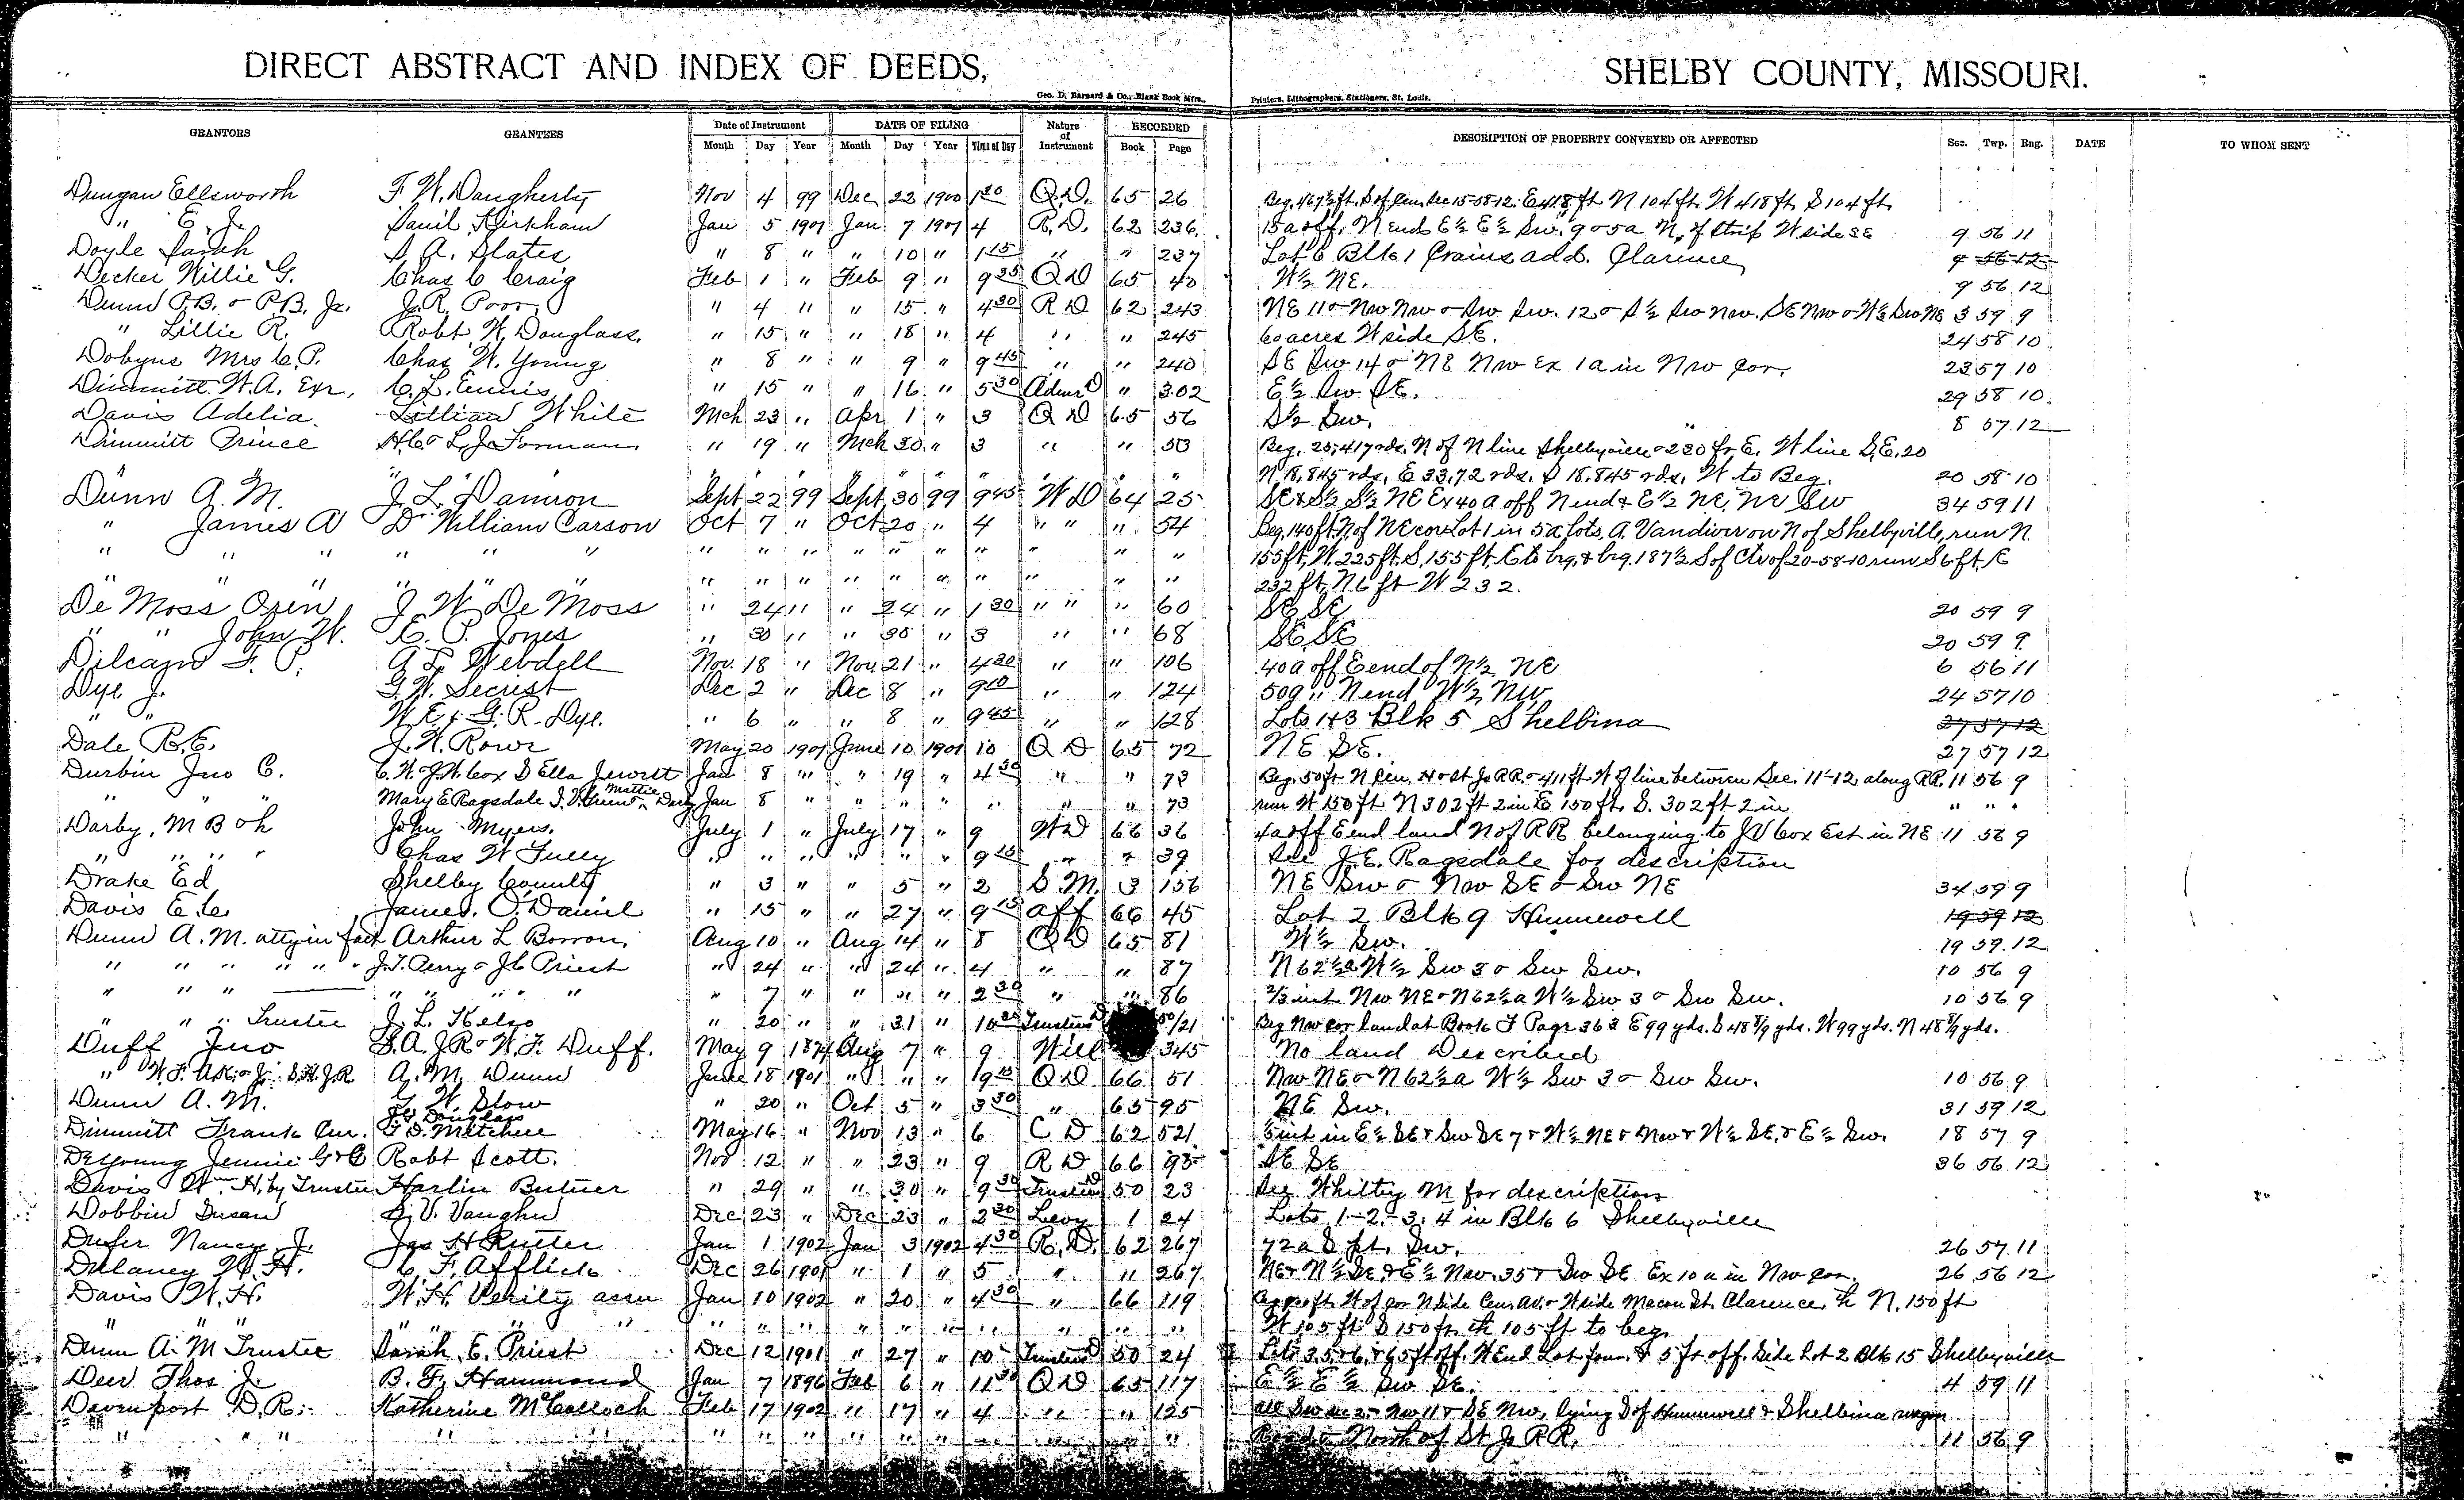 DIRECT ABSTRACT AND INDEX OF DEEDS, SHELBY COUNTY, MISSOURI.
Geo. D. Barnard & Co., Blank Book Mfrs., Printers, Lithographers, Stationers, St. Louis.
GRANTORS GRANTEES Date of Instrument DATE OF FILING Nature of Instrument RECORDED DESCRIPTION OF PROPERTY CONVEYED OR AFFECTED Sec. Twp. Rng. DATE TO WHOM SENT
Month Day Year Month Day Year Time of Day Book Page
Dungan Ellsworth F. W. Daugherty Nov 4 99 Dec 22 1900 1 30 Q.D. 65 26 Beg. 467½ ft. S of Cen. Sec 15-58-12. E 418 ft N 104 ft. W 418 ft. S 104 ft.
" E. J. Kirkham Jan 5 1901 Jan 7 1901 4 R.D. 62 236 15a off. N end E½ E½ Sw. 9 & 5a N. of strip W side SE 9 56 11
Doyle Sarah S. A. Slates " 8 " " 10 " 1 15 " " 237 Lot 6 Blk 1 Crains add. Clarence 9 56 12
Decker Willie G. Chas C Craig Feb 1 " Feb 9 " 9 35 Q D 65 40 W½ NE. 9 56 12
Dunn P.B. & P.B. Jr. J. R. Poor " 4 " " 15 " 4 30 R D 62 243 NE 11 & Nw Nw & Sw Sw. 12 & S½ Sw Nw. SE Nw & W½ Sw NE 3 59 9
" Lillie R. Robt. W. Douglass. " 15 " " 18 " 4 " " 245 60 acres W side SE. 24 58 10
Dobyns Mrs C. P. Chas W. Young " 8 " " 9 " 9 45 " " 240 SE Sw 14 & NE Nw Ex 1a in Nw Cor. 23 57 10
Dimmitt W. A. Exr. C. L. Ennis " 15 " " 16 " 5 30 Admr D " 302 E½ Sw SE. 29 58 10
Davis Adelia. Lillian White Mch 23 " Apr 1 " 3 Q D 65 56 S½ Sw. 8 57 12
Dimmitt Prince H.C. & L. J. Forman " 19 " Mch 30 " 3 " " 53 Beg. 25.417 rds. N of N line Shelbyville & 230 fr E. W line S.E. 20
" " " " " " " " N 18.845 rds, E 33.72 rds. S 18.845 rds. W to Beg. 20 58 10
Dunn A. M. J. L. Damron Sept 22 99 Sept 30 99 9 45 W D 64 25 SE & S½ S½ NE Ex 40 a off N end & E½ NE, NE Sw 34 59 11
" James A Dr William Carson Oct 7 " Oct 20 " 4 " " " 54 Beg. 140 ft. N. of NE cor Lot 1 in 5a lots, A. Vandiver on N of Shelbyville, run N.
" " " " " " " " " " " " " " " " 155 ft, W. 225 ft. S. 155 ft. E to beg. & beg. 187½ S of Ctr of 20-58-10 run S 6 ft. E
" " " " " " " " " " " " " " 232 ft. N 6 ft W 232.
De Moss Oren J. W. De Moss " 24 " " 24 " 1 30 " " " 60 SE SE 20 59 9
" " John W. E. P. Jones " 30 " " 30 " 3 " " 68 SE SE 20 59 9
Dilcam F. P. A. L. Webdell Nov. 18 " Nov. 21 " 4 30 " " 106 40 a off E end of N½ NE 6 56 11
Dye J. G. W. Secrist Dec 2 " Dec 8 " 9 10 " " 124 50 a " N end W½ NW 24 57 10
" " W. E. & G. R. Dye. " 6 " " 8 " 9 45 " " 128 Lots 1 & 3 Blk 5 Shelbina 27 57 12
Dale R. E. J. W. Rowe May 20 1901 June 10 1901 10 Q D 65 72 N E SE. 27 57 12
Durbin Jno C. C. W. & J. W. Cox S Ella Jewett Jan 8 " " 19 " 4 30 " " 73 Beg. 50 ft N Cen. H & St Jo RR. & 411 ft W of line between Sec. 11-12 along RR. 11 56 9
" " " Mary E Ragsdale Mattie Jan 8 " " " " " " " 73 run W 150 ft N 302 ft 2 in E 150 ft. S. 302 ft 2 in " " "
Darby, M B & h John Myers. July 1 " July 17 " 9 W D 66 36 4a off E end land N of RR belonging to J V Cox Est in NE 11 56 9
" " " " Chas W Tully " " " " " " 9 15 " " 39 See J. E. Ragsdale for description
Drake Ed Shelby County " 3 " " 5 " 2 S. M. 3 156 NE Sw & Nw SE & Sw NE 34 59 9
Davis E. C. James. O. Daniel " 15 " " 27 " 9 15 Aff 66 45 Lot 2 Blk 9 Hunnewell 19 59 12
Dunn A. M. atty in fact Arthur L Borron, Aug 10 " Aug 14 " 8 Q D 65 81 W½ Sw. 19 59 12
" " " " " " J. T. Perry & J C Priest " 24 " " 24 " 4 " " 87 N 62½ a W½ Sw 3 & Sw Sw. 10 56 9
" " " " " " " " 7 " " " " 2 30 " " 86 ⅔ int Nw NE & N 62½ a W½ Sw 3 & Sw Sw. 10 56 9
" " " Trustee J. L. Kelso " 20 " " 31 " 10 Trustees D 50/21 Beg Nw cor land at Book F Page 363 E 99 yds. S 48 8/9 yds. W 99 yds. N 48 8/9 yds.
Duff Jno S. A. J. R. & W. F. Duff. May 9 Aug 7 " 9 Will 345 No land Described
" A. M. Dunn June 18 1901 " " " 9 Q D 66 51 Nw NE & N 62½ a W½ Sw 3 & Sw Sw. 10 56 9
Dunn A. M. W. Stow " 20 " Oct 5 " 3 30 " 65 95 NE Sw. 31 59 12
Dimmitt Frank Cur. Douglass May 16 " Nov 13 " 6 C D 62 521 int in E½ SE & Sw SE 7 & W½ NE & Nw & W½ SE. & E½ Sw. 18 57 9
DeYoung Jennie G & C Robt Scott. Nov 12 " " 23 " 9 R D 66 93 SE SE 36 56 12
Davis Wm H. by Trustee Harlin Butner " 29 " " 30 " 9 30 Trustees D 50 23 See M for description
Dobbin Susan V. Vaughn Dec 23 " Dec 23 " 2 30 Levy 1 24 Lots 1-2-3. 4 in Blk 6 Shelbyville
Nancy J. Jas H Jan 1 1902 Jan 3 1902 4 30 R. D. 62 267 72 a S pt. Sw. 26 57 11
Dulaney W. H. C. F. Afflick Dec 26 1901 " 1 " 5 " " 267 NE & N½ SE. & E½ Nw. 35 & Sw SE Ex 10 a in Nw cor. 26 56 12
Davis W. H. W. H. Verity Jan 10 1902 " 20 " 4 30 " 66 119 W of cor N side Cen. av. & W side Macon St. Clarence th N. 150 ft
" " " " " " " " " " " " " " " W 105 ft S 150 ft. th 105 ft to beg.
Dunn A. M Trustee Sarah E. Priest Dec 12 1901 " 27 " 10 Trustees D 50 24 Lots 3.5. & 6. & 65 ft off. W End Lot four. & 5 ft off. Side Lot 2 Blk 15 Shelbyville
Deer Thos J. B. F. Hammond Jan 7 1896 Feb 6 " 11 30 Q D 65 117 E½ E½ Sw SE. 4 59 11
Davenport D. R. Katherine McColloch Feb 17 1902 " 17 " 4 " " 125 all Sw Nw 11 & SE Nw. lying S of Hunnewell & Shelbina wagon
" " " " " " " " " " " " " " Road & North of St Jo RR. 11 56 9